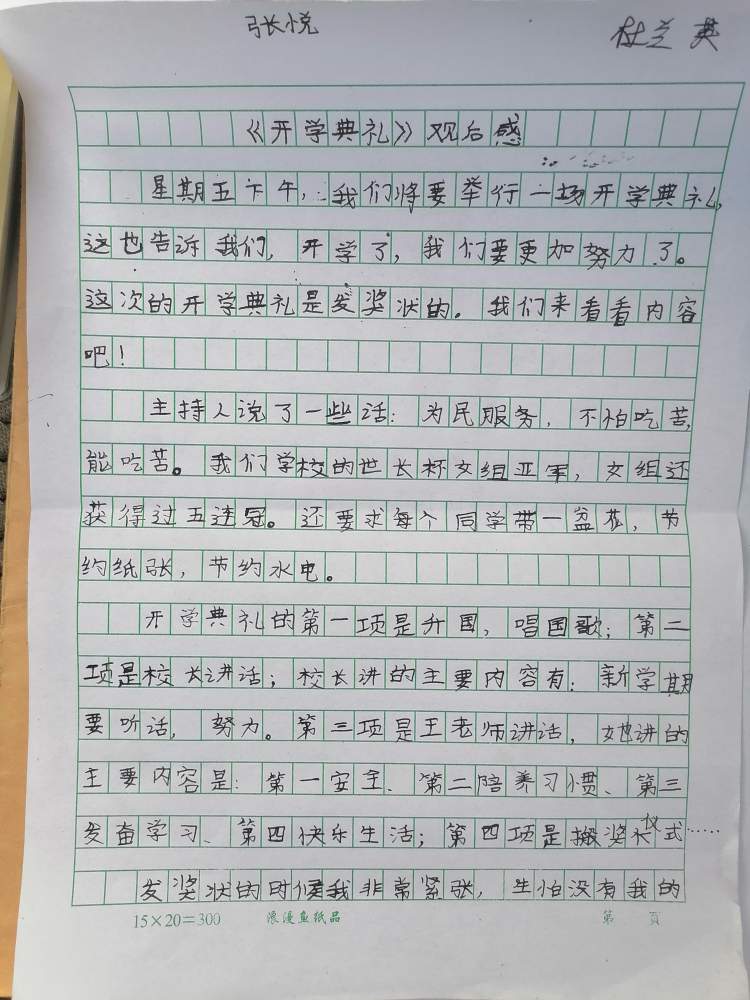 张悦 杜兰英
《开学典礼》观后感
星期五下午，我们将要举行一场开学典礼，
这也告诉我们，开学了，我们要更加努力了。
这次的开学典礼是发奖状的。我们来看看内容
吧！
主持人说了一些话：为民服务，不怕吃苦，
能吃苦。我们学校的世长杯女组亚军，女组还
获得过五连冠。还要求每个同学带一盆花，节
约纸张，节约水电。
开学典礼的第一项是升国，唱国歌；第二
项是校长讲话；校长讲的主要内容有：新学期
要听话，努力。第三项是王老师讲话，她讲的
主要内容是：第一安全、第二陪养习惯、第三
发奋学习、第四快乐生活；第四项是搬奖长仪式……
发奖状的时候我非常紧张，生怕没有我的
15×20=300 浪漫鱼纸品 第 頁